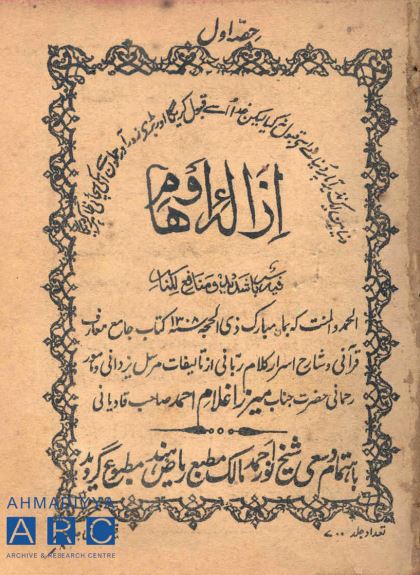 حصّہ اوّل
دنیا میں ایک نذیر آیا پر دنیا نے اسے قبول نہ کیا لیکن خدا اسے قبول کریگا اور بڑے زور آور حملوں سے اسکی سچائی ظاہر کردیگا
ازالہ اوہام
فیہ باس شدید و منافع للناس
الحمد و المنت کہ بماہ مبارک ذی الحجہ ۱۳۰۸ کتاب جامع معارف
قرآنی و شارح اسرار کلام ربانی از تالیفات مرسل یزدانی و مامور
رحمانی حضرت جناب میرزا غلام احمد صاحب قادیانی
باہتمام و سعی شیخ نور احمد مالک مطبع ریاض ہند مطبوع گردید
تعداد جلد ۷۰۰
AHMADIYYA
ARC
ARCHIVE & RESEARCH CENTRE